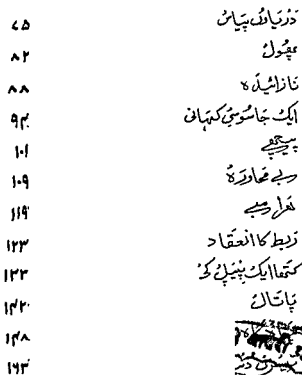 دریاؤں پیاس ۷۵
مقبول ۸۲
نازائیدہ ۸۸
ایک جاسوسی کہانی ۹۴
پیچھے ۱۰۱
بے محاورہ ۱۰۹
۱۱۹
ربط کا انعقاد ۱۲۳
کتھا ایک پیپل کی ۱۳۳
پاتال ۱۴۲
۱۴۸
۱۶۳